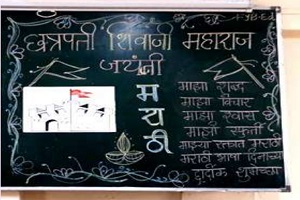 छत्रपती शिवाजी महाराज
जयंती
म
रा
ठी
माझा शब्द
माझा विचार
माझा श्वास
माझी स्फूर्ती
माझ्या रक्तात मराठी
मराठी भाषा दिनाच्या
हार्दिक शुभेच्छा